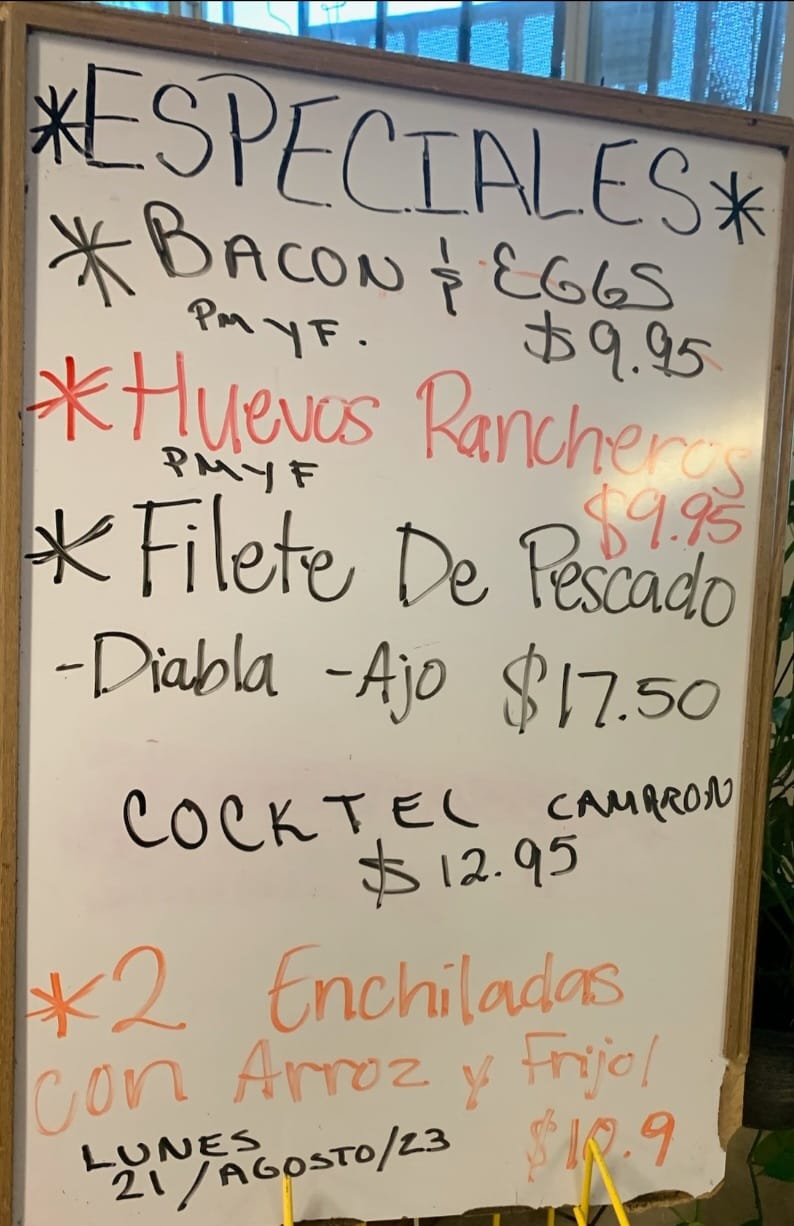 *ESPECIALES*
*BACON & EGGS
PM Y F. $9.95
*Huevos Rancheros
PM Y F $9.95
*Filete De Pescado
-Diabla -Ajo $17.50
COCKTEL CAMARON
$12.95
*2 Enchiladas
con Arroz y Frijol
$10.9
LUNES
21/AGOSTO/23